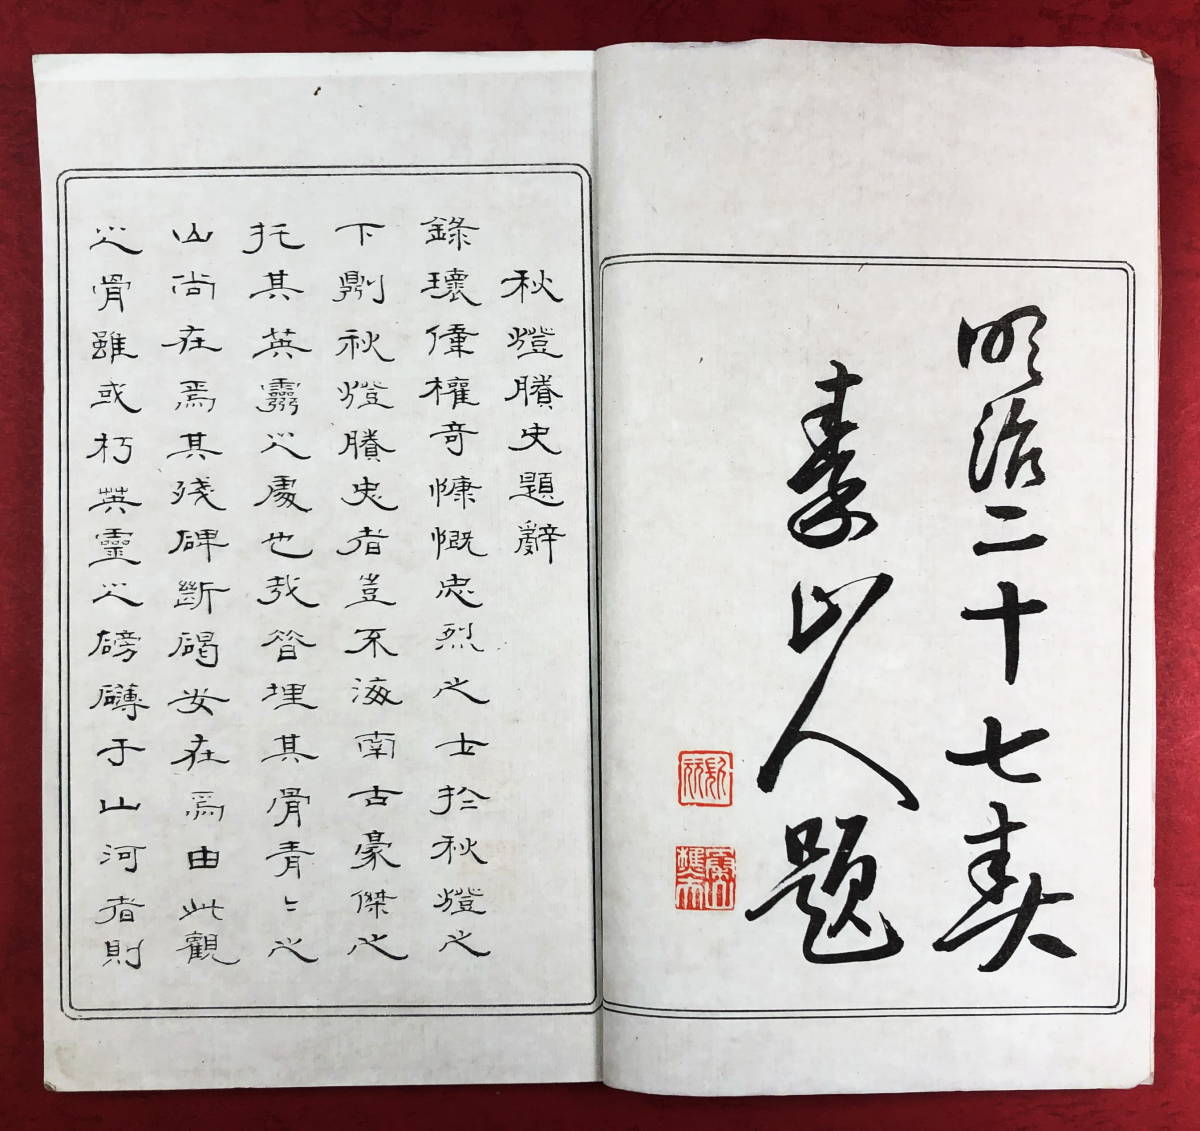 明治二十七
山人題
秋燈賸史題辭
錄瓌偉權奇慷慨忠烈之士於秋燈之
下則秋燈賸史者豈不海南古豪傑之
托其英靈之處也哉昔埋其骨青〻之
山尚在焉其殘碑斷碣安在焉由此觀
之骨雖或朽英靈之磅礴于山河者則